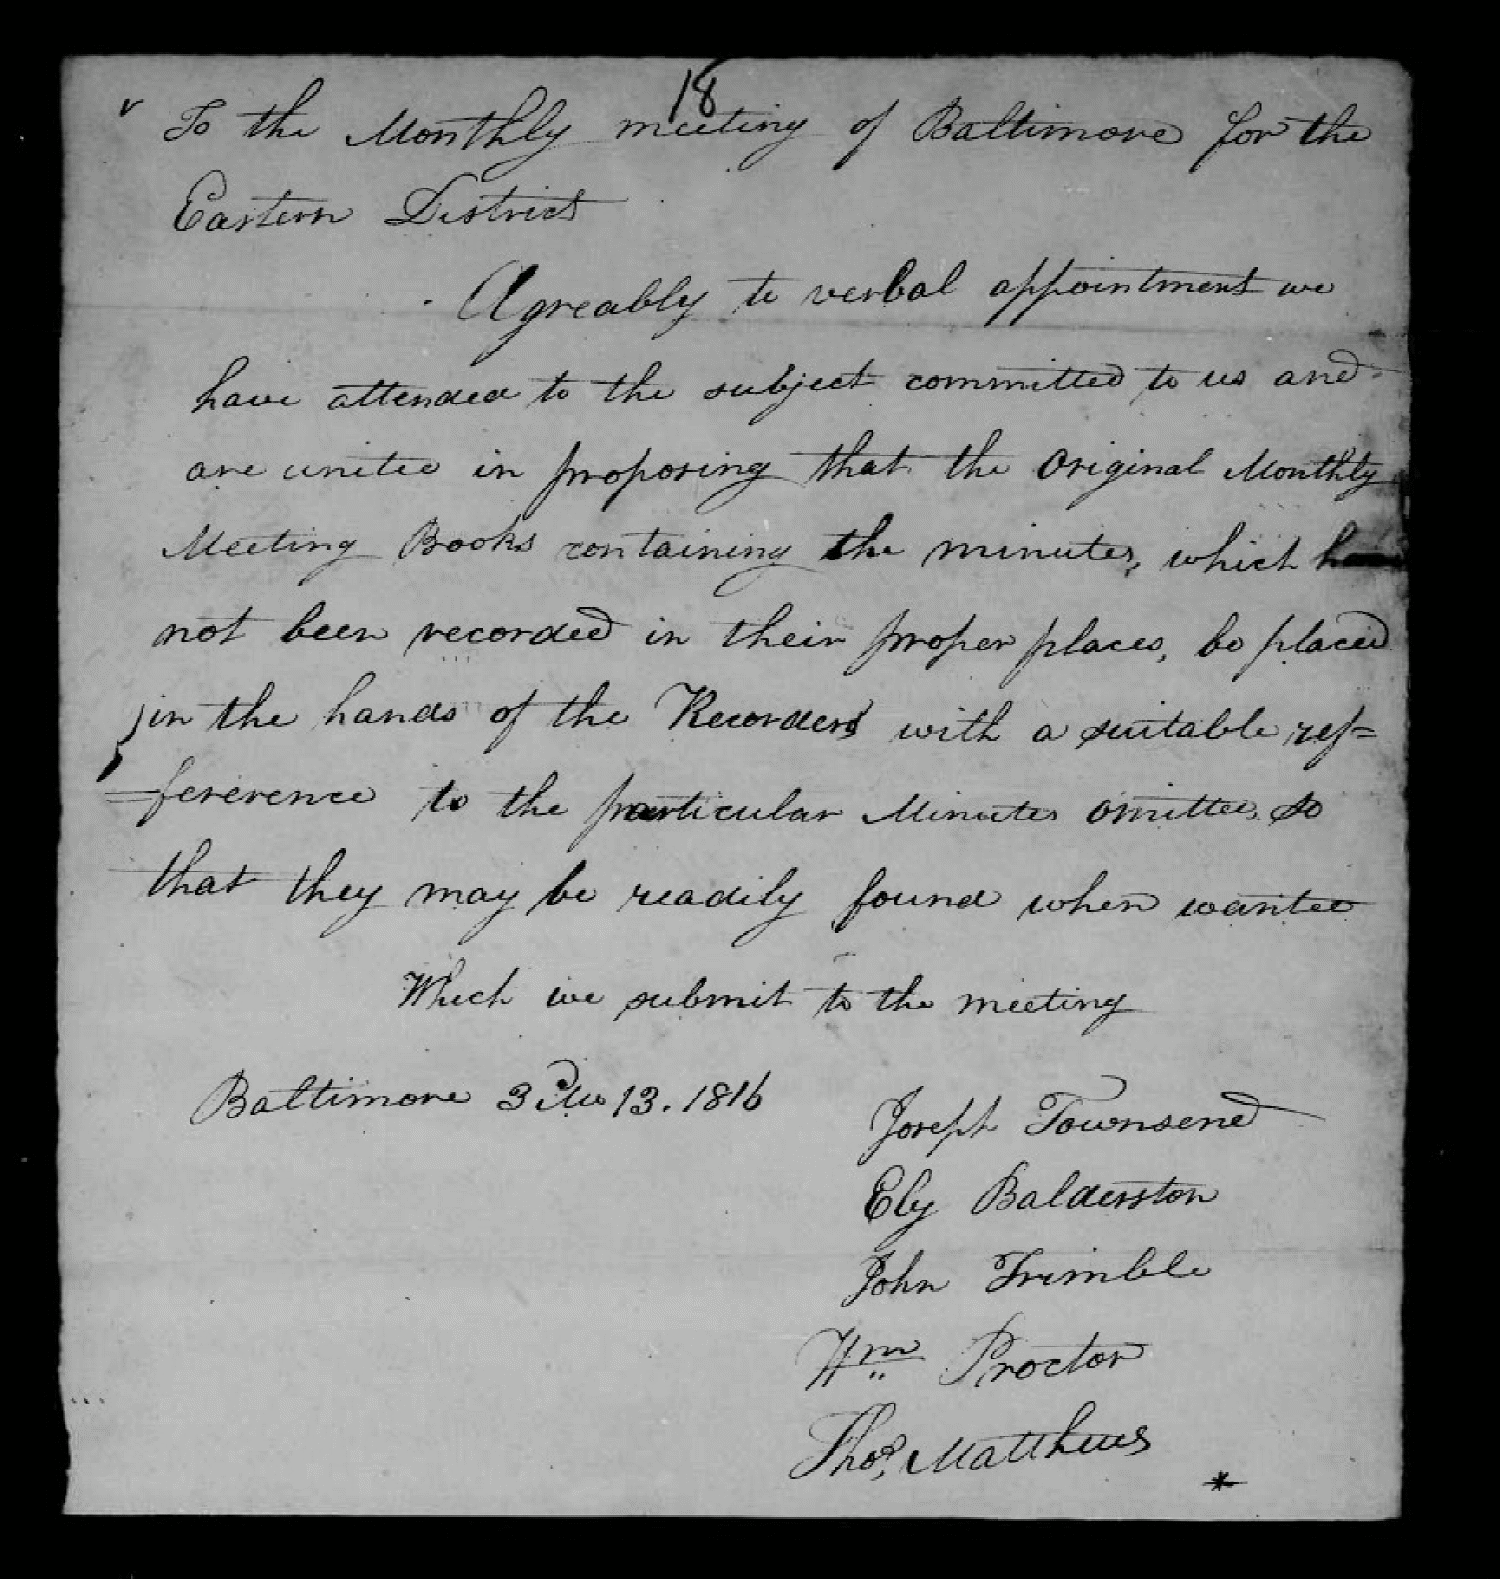 18
To the Monthly meeting of Baltimore for the
Eastern District
Agreably to verbal appointment we
have attended to the subject committed to us and
are united in proposing that the Original Monthly
Meeting Books containing the minutes, which
not been recorded in their proper places, be placed
in the hands of the Recorders with a suitable ref=
=ference to the particular Minutes omitted, so
that they may be readily found when wanted
Which we submit to the meeting
Baltimore 3d Mo 13. 1816
Joseph Townsend
Ely Balderston
John Trimble
Wm Proctor
Thos. Matthews